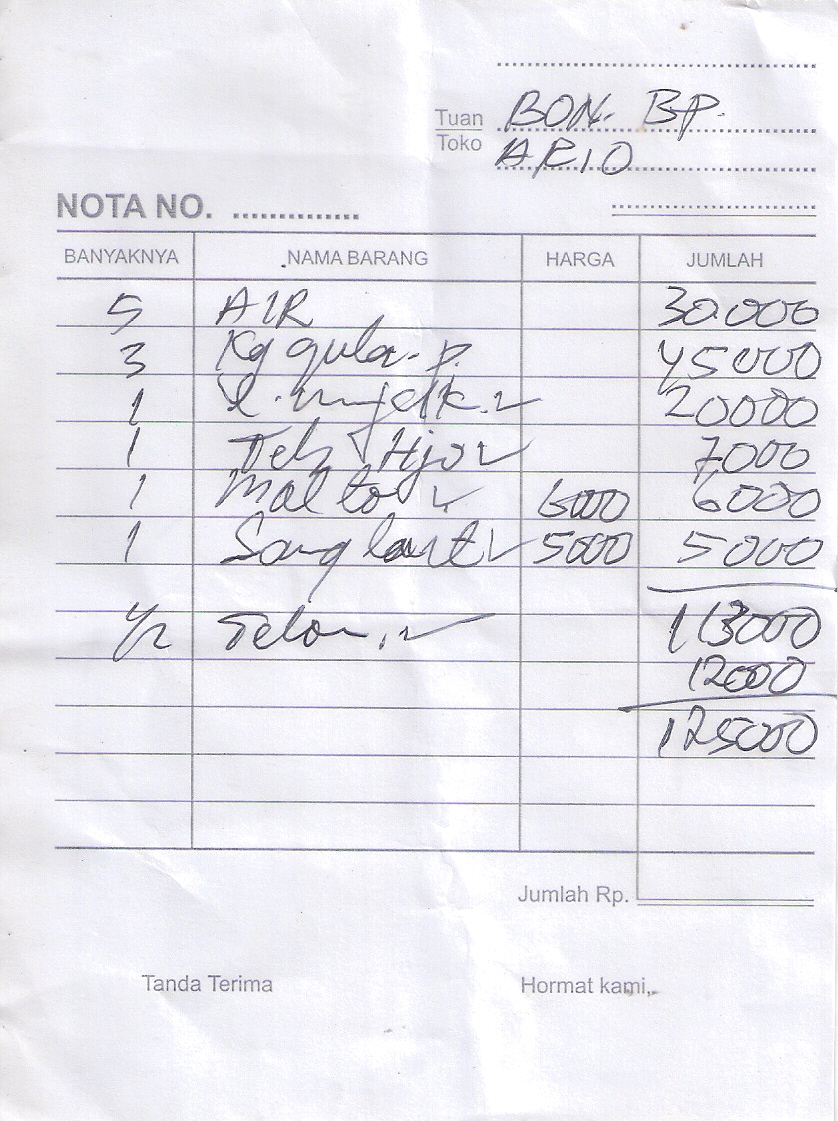 Tuan BON. BP.
Toko ARIO
NOTA NO. ..............
BANYAKNYA NAMA BARANG HARGA JUMLAH
5 AIR 30.000
3 Kg gula. p. 45000
1 20000
1 Teh Hijo 7000
1 Malto 6000 6000
1 5000 5000
113000
1/2 Telor
12000
125000
Jumlah Rp.
Tanda Terima Hormat kami,